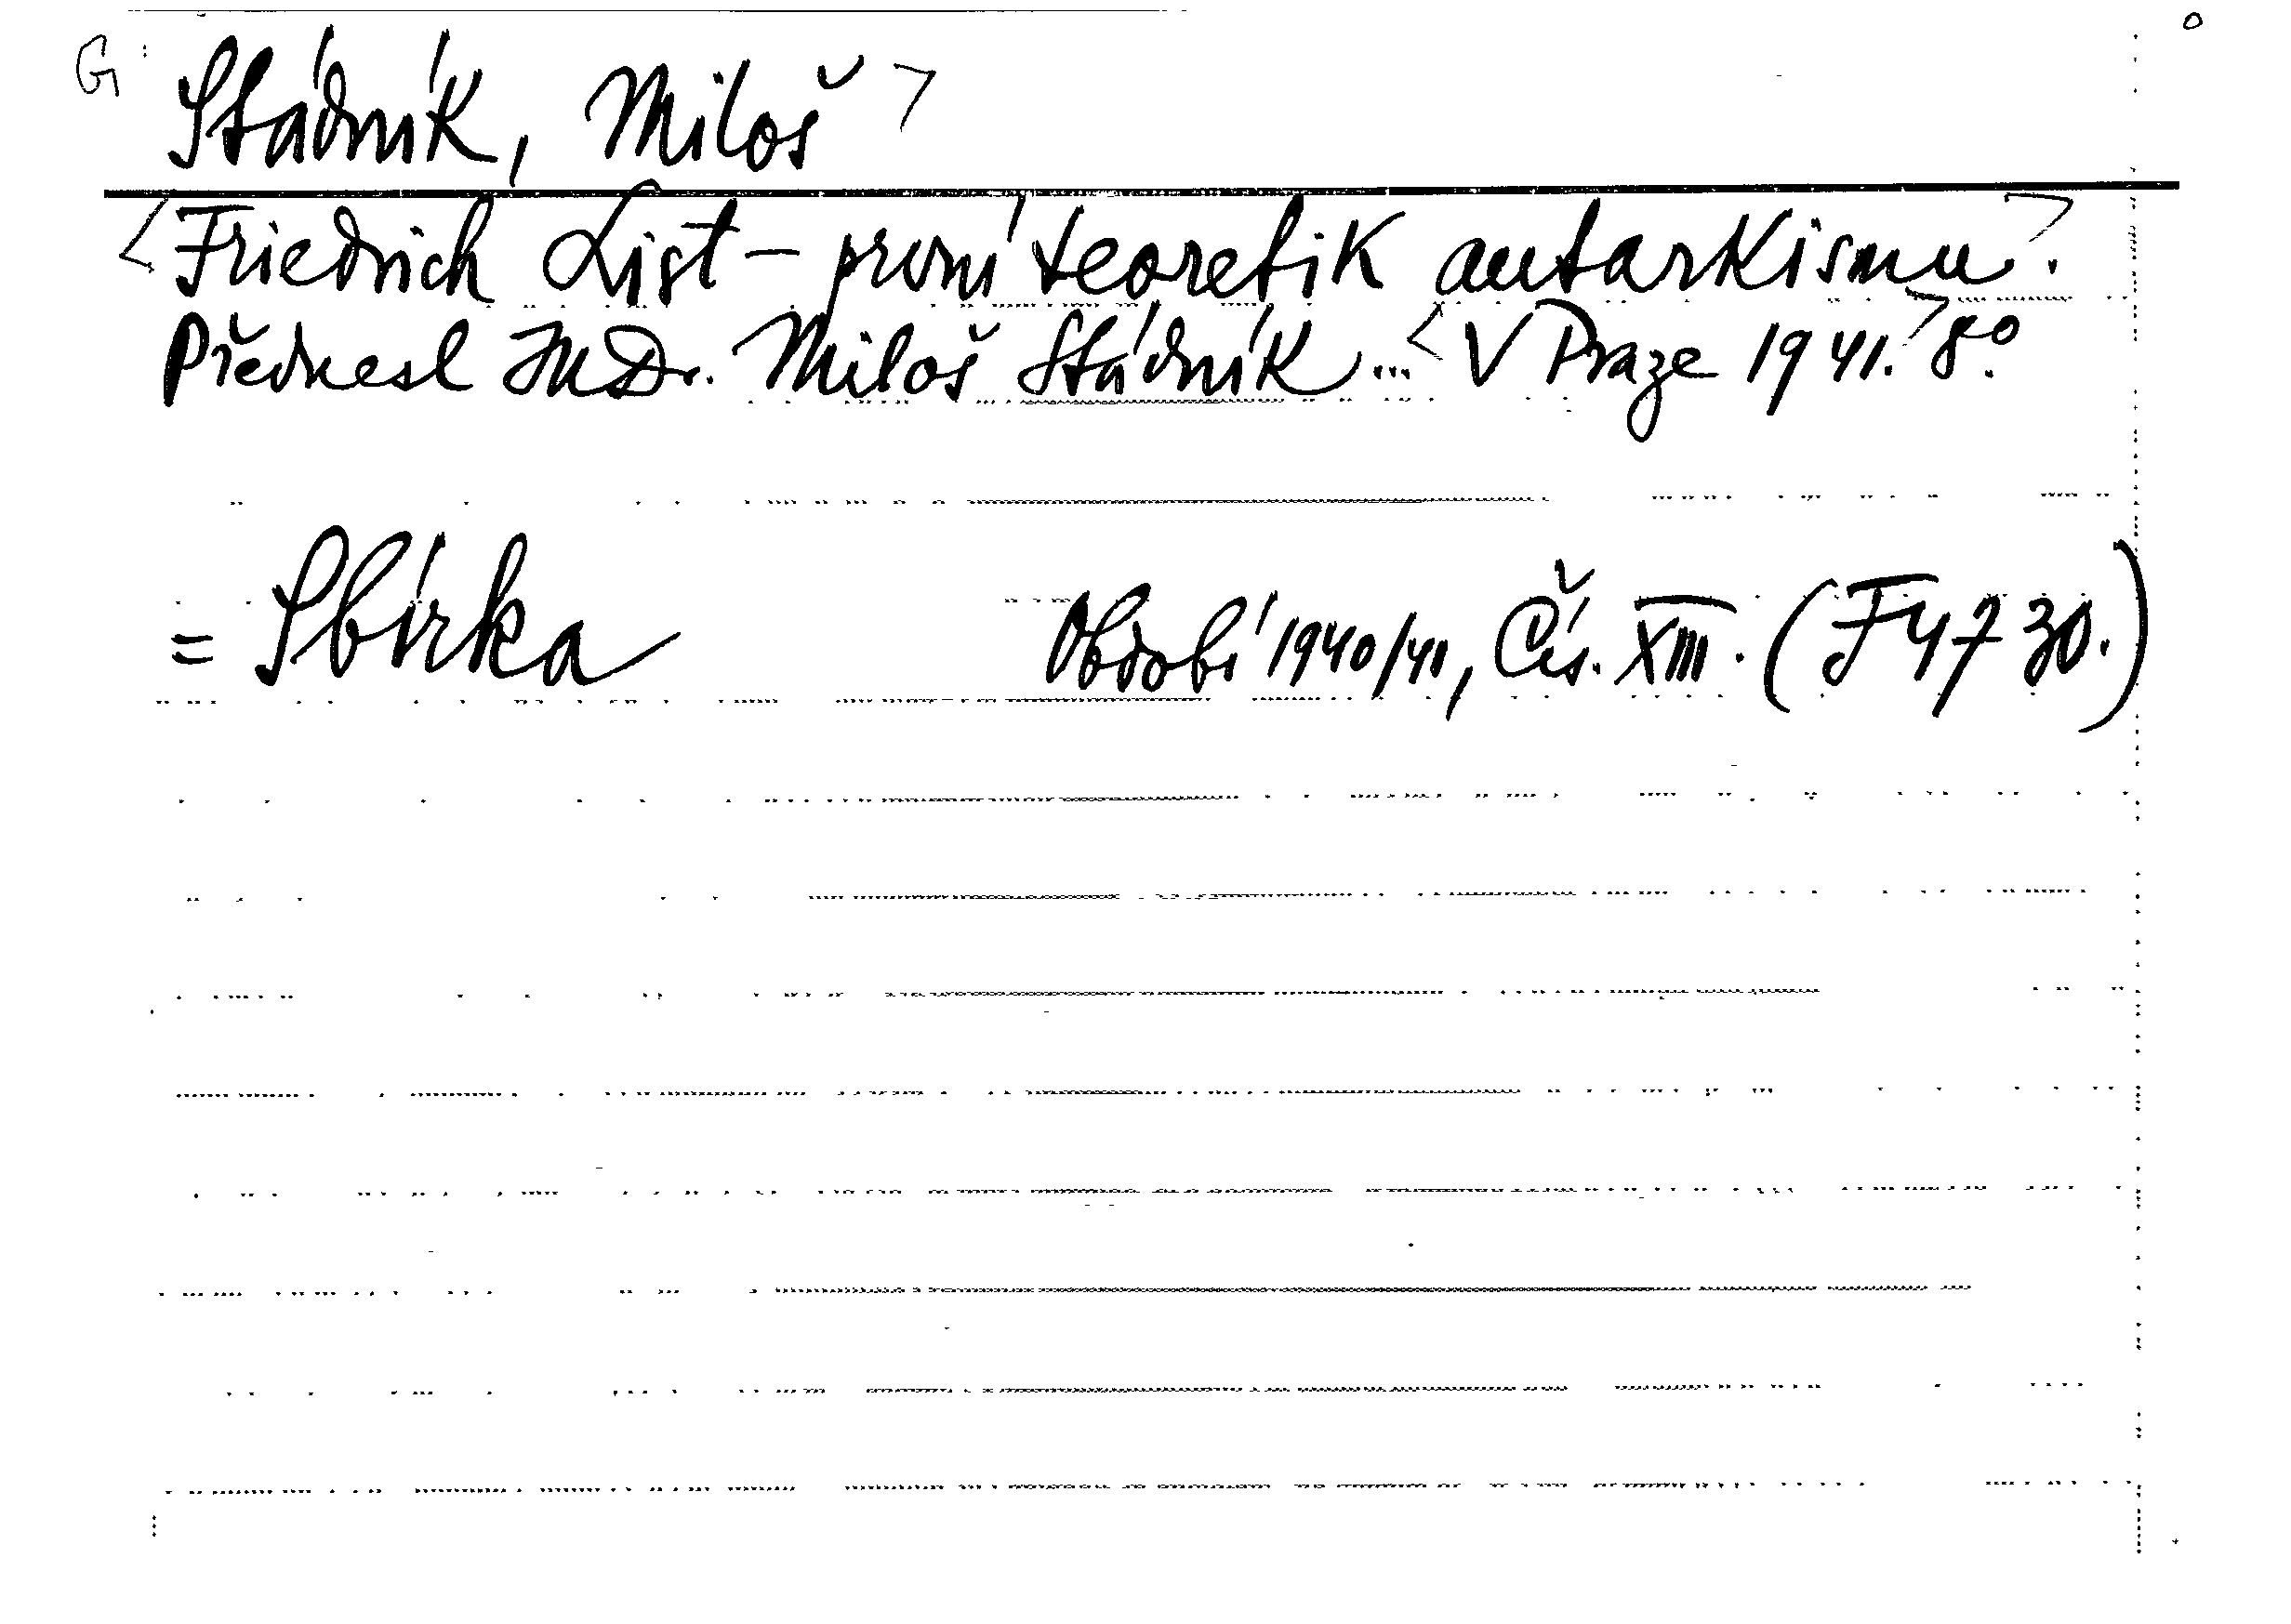 G Stádník, Miloš >
< Friedrich List – první teoretik autarkismu >.
Přednesl JUDr. Miloš Stádník ... < V Praze 1941. > 8°.
= Sbírka Období 1940/41, Čís. XIII. (F 4730.)